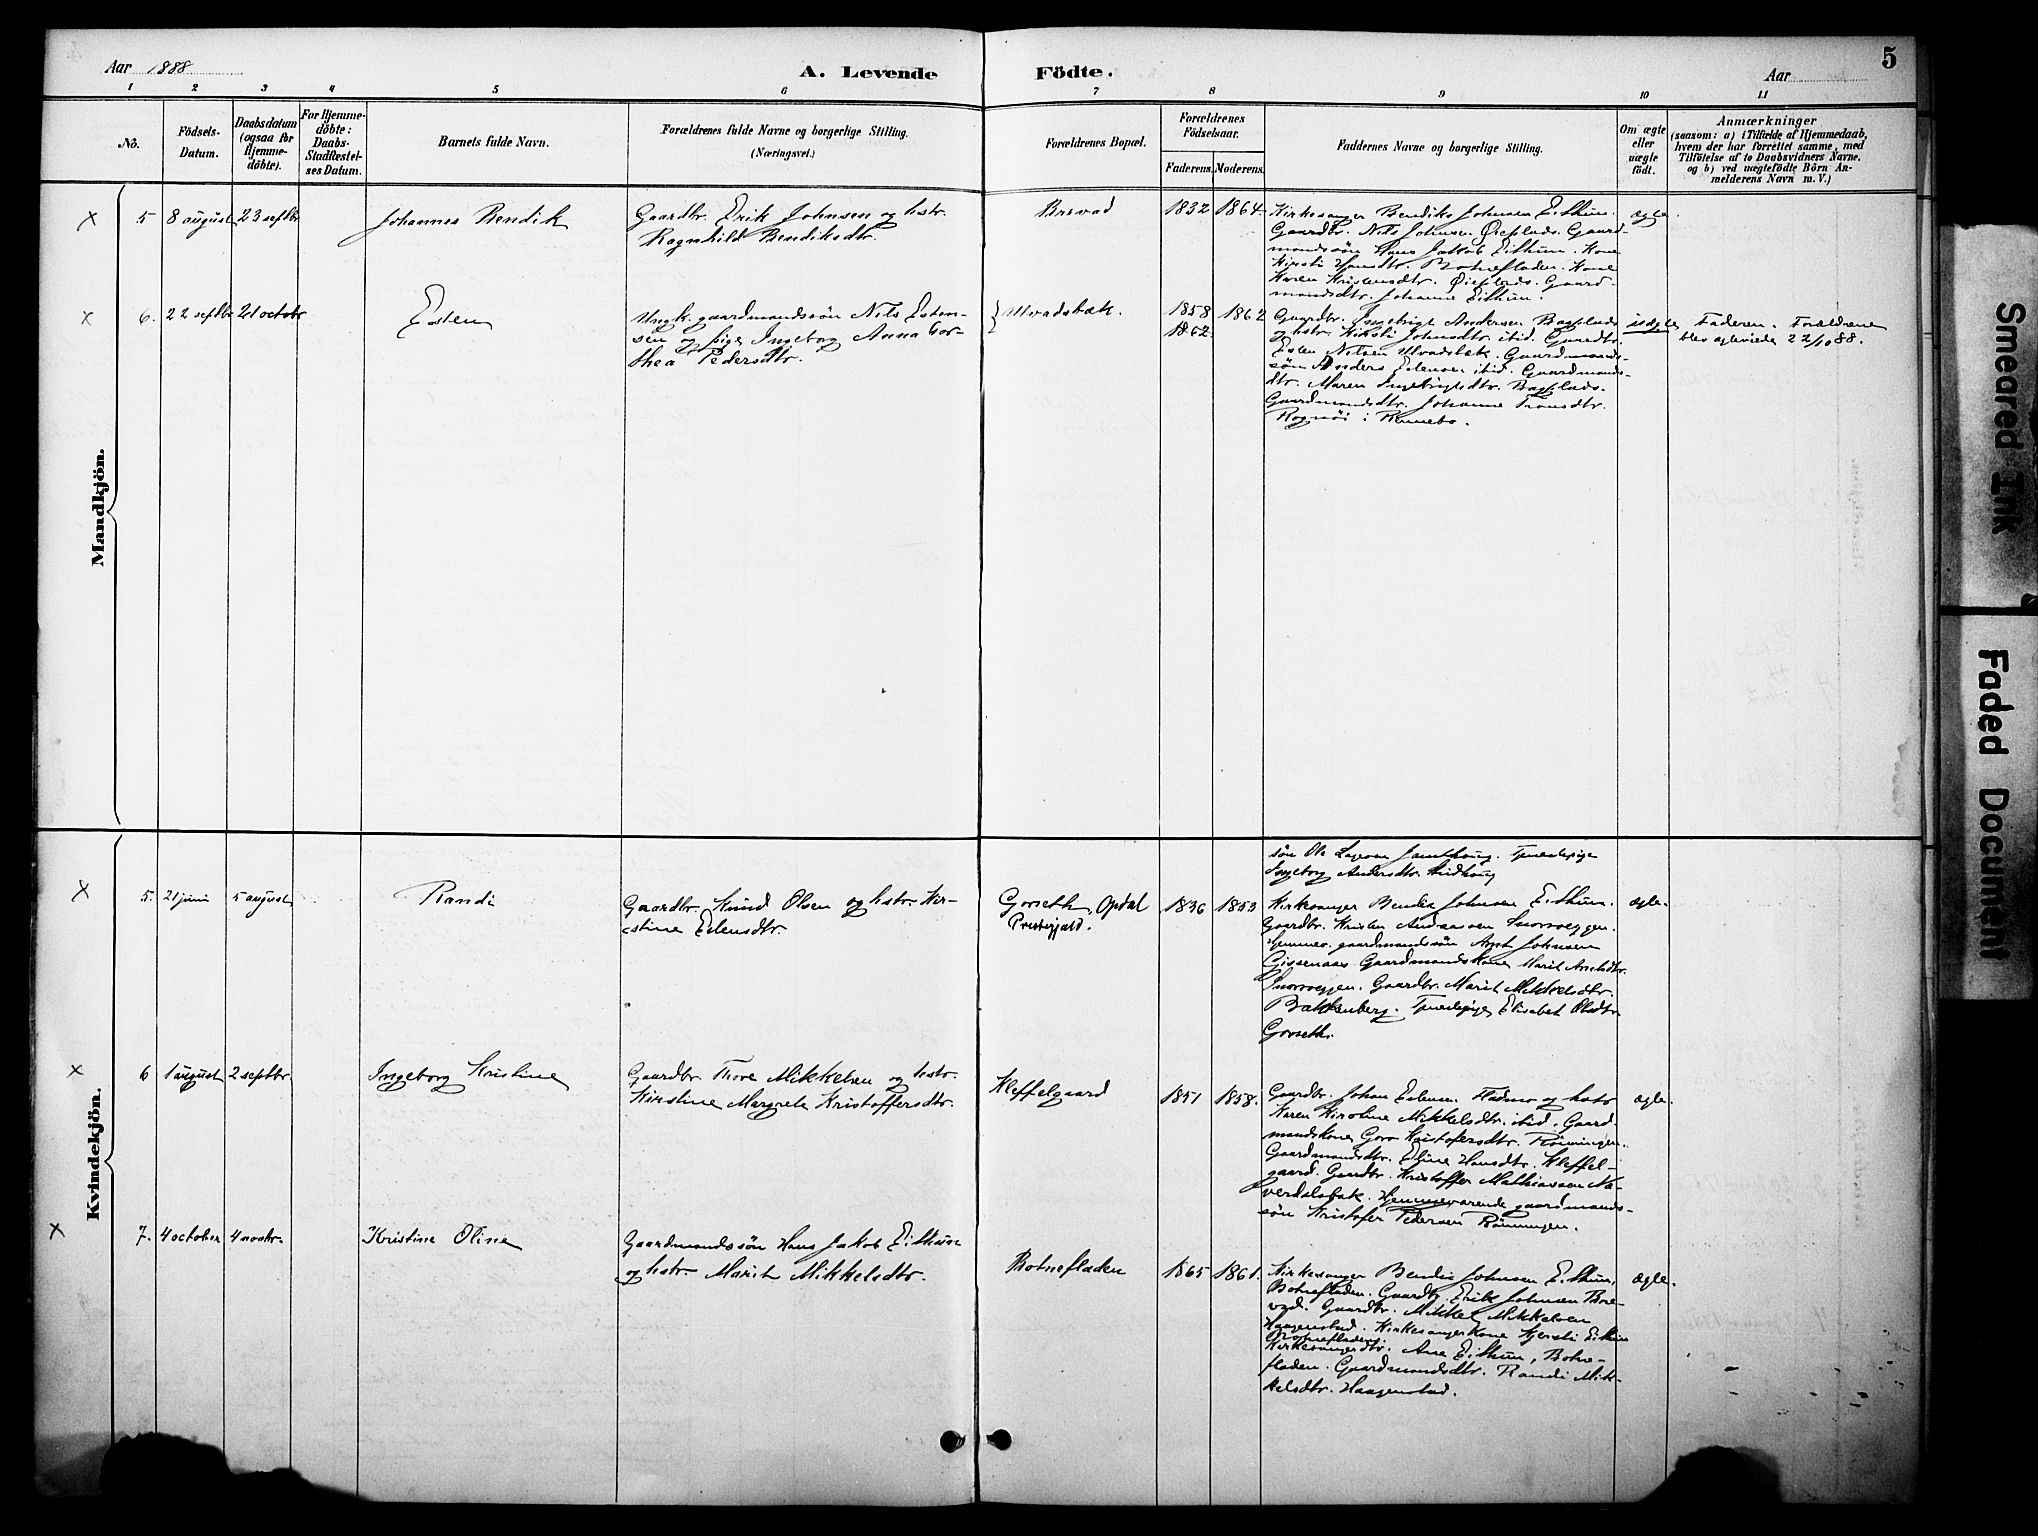 Aar 1888
A. Levende
Födte.
Aar
5
1 2 3 4 5 6 7 8 9 10 11
No.
Födsels-
Datum.
Daabsdatum
(ogsaa for
Hjemme-
döbte).
For Hjemme-
döbte:
Daabs-
Stadfæstel-
ses Datum.
Barnets fulde Navn.
Forældrenes fulde Navne og borgerlige Stilling.
(Næringsvei.)
Forældrenes Bopæl.
Forældrenes
Födselsaar.
Faderens. Moderens.
Faddernes Navne og borgerlige Stilling.
Om ægte
eller
uægte
født.
Anmærkninger
(saasom: a) i Tilfælde af Hjemmedaab,
hvem der har forrettet samme, med
Tilföielse af to Daabsvidners Navne.
og b) ved uægtefödte Börn An-
melderens Navn m. V.)
Mandkjön.
× 5 8 august 23 septbr
Johannes Bendik
Gaardbr. Erik Johnsen og hstr.
Ragnhild Bendiksdtr.
Brevad
1832 1864.
Kirkesanger Bendik Johnsen Eithun.
Gaardbr. Nils Johnsen Øieplads. Gaard-
mandssön Hans Jakob Eithun. Kone
Kirsti Hansdtr. Botnefladen. Kone
Karen Kristensdtr. Øieplads. Gaard-
mandsdtr. Johanne Eithun.
ægte
× 6. 22 septbr 21 octobr
Esten
Ungk. gaardmandssön Nils Esten-
sen og pige Ingeborg Anna Dor-
thea Pedersdtr.
Ulvadsbæk.
1858 1862
1862.
Gaardbr. Ingebrigt Andersen Bagplads
og hstr. Kirsti Johnsdtr. ibid. Gaardbr.
Esten Nilsen Ulvadsbæk. Gaardmands-
sön Anders Estensen ibid. Gaardmands-
dtr. Maren Ingebrigtsdtr. Bagplads.
Gaardmandsdtr. Johanne Tronsdtr.
Rognöi i Rennebo.
uægte
Faderen. Forældrene
blev ægteviede 22/10 88.
Kvindekjön.
sön Ole Larsen
Ingeborg Andersdtr.
× 5. 21 juni 5 august
Randi
Gaardbr. Knud Olsen og hstr. Kir-
stine Estensdtr.
Gorseth, Opdal
Præstegjæld.
1836 1853
Kirkesanger Bendik Johnsen Eithun.
Gaardbr. Kristen Andreassen Snoeveggen.
Hjemmev. gaardmandssön Arnt Johnsen
Gissenaas Gaardmandskone Marit Arntsdtr.
Snoeveggen. Gaardbr. Marit Mikkelsdtr.
Bakkenberg. Tjenestepige Elisabet Olsdtr
Gorseth.
ægte.
× 6 1 august 2 septbr.
Ingeborg Kristine
Gaardbr. Thore Mikkelsen og hstr.
Kirstine Margrete Kristoffersdtr.
Kleffelgaard
1851 1858.
Gaardbr. Johan Estensen Fladmo og hstr
Karen Kirstine Mikkelsdtr. ibid. Gaard-
mandskone Goro Kristofersdtr. Rönningen.
Gaardmandsdtr. Eline Hansdtr. Kleffel-
gaard. Gaardbr. Kristoffer Mathiassen Na-
verdalsbak. Hjemmeværende gaardmands-
sön Kristofer Pedersen Rönningen.
ægte.
× 7. 4 october 4 novbr.
Kristine Oline
Gaardmandssön Hans Jakob Eithun
og hstr. Marit Mikkelsdtr.
Botnefladen
1865 1861.
Kirkesanger Bendik Johnsen Eithun,
Botnefladen. Gaardbr. Erik Johnsen Bre-
vad. Gaardbr. Mikkel Mikkelsen
Haagenstad. Kirkesangerkone Kjersti Eithun
Botnefladen.
Kirkesangerdtr. Ane Eithun, Botne-
fladen. Gaardmandsdtr. Randi Mik-
kelsdtr. Haagenstad.
ægte.
Smeared Ink
Faded Document